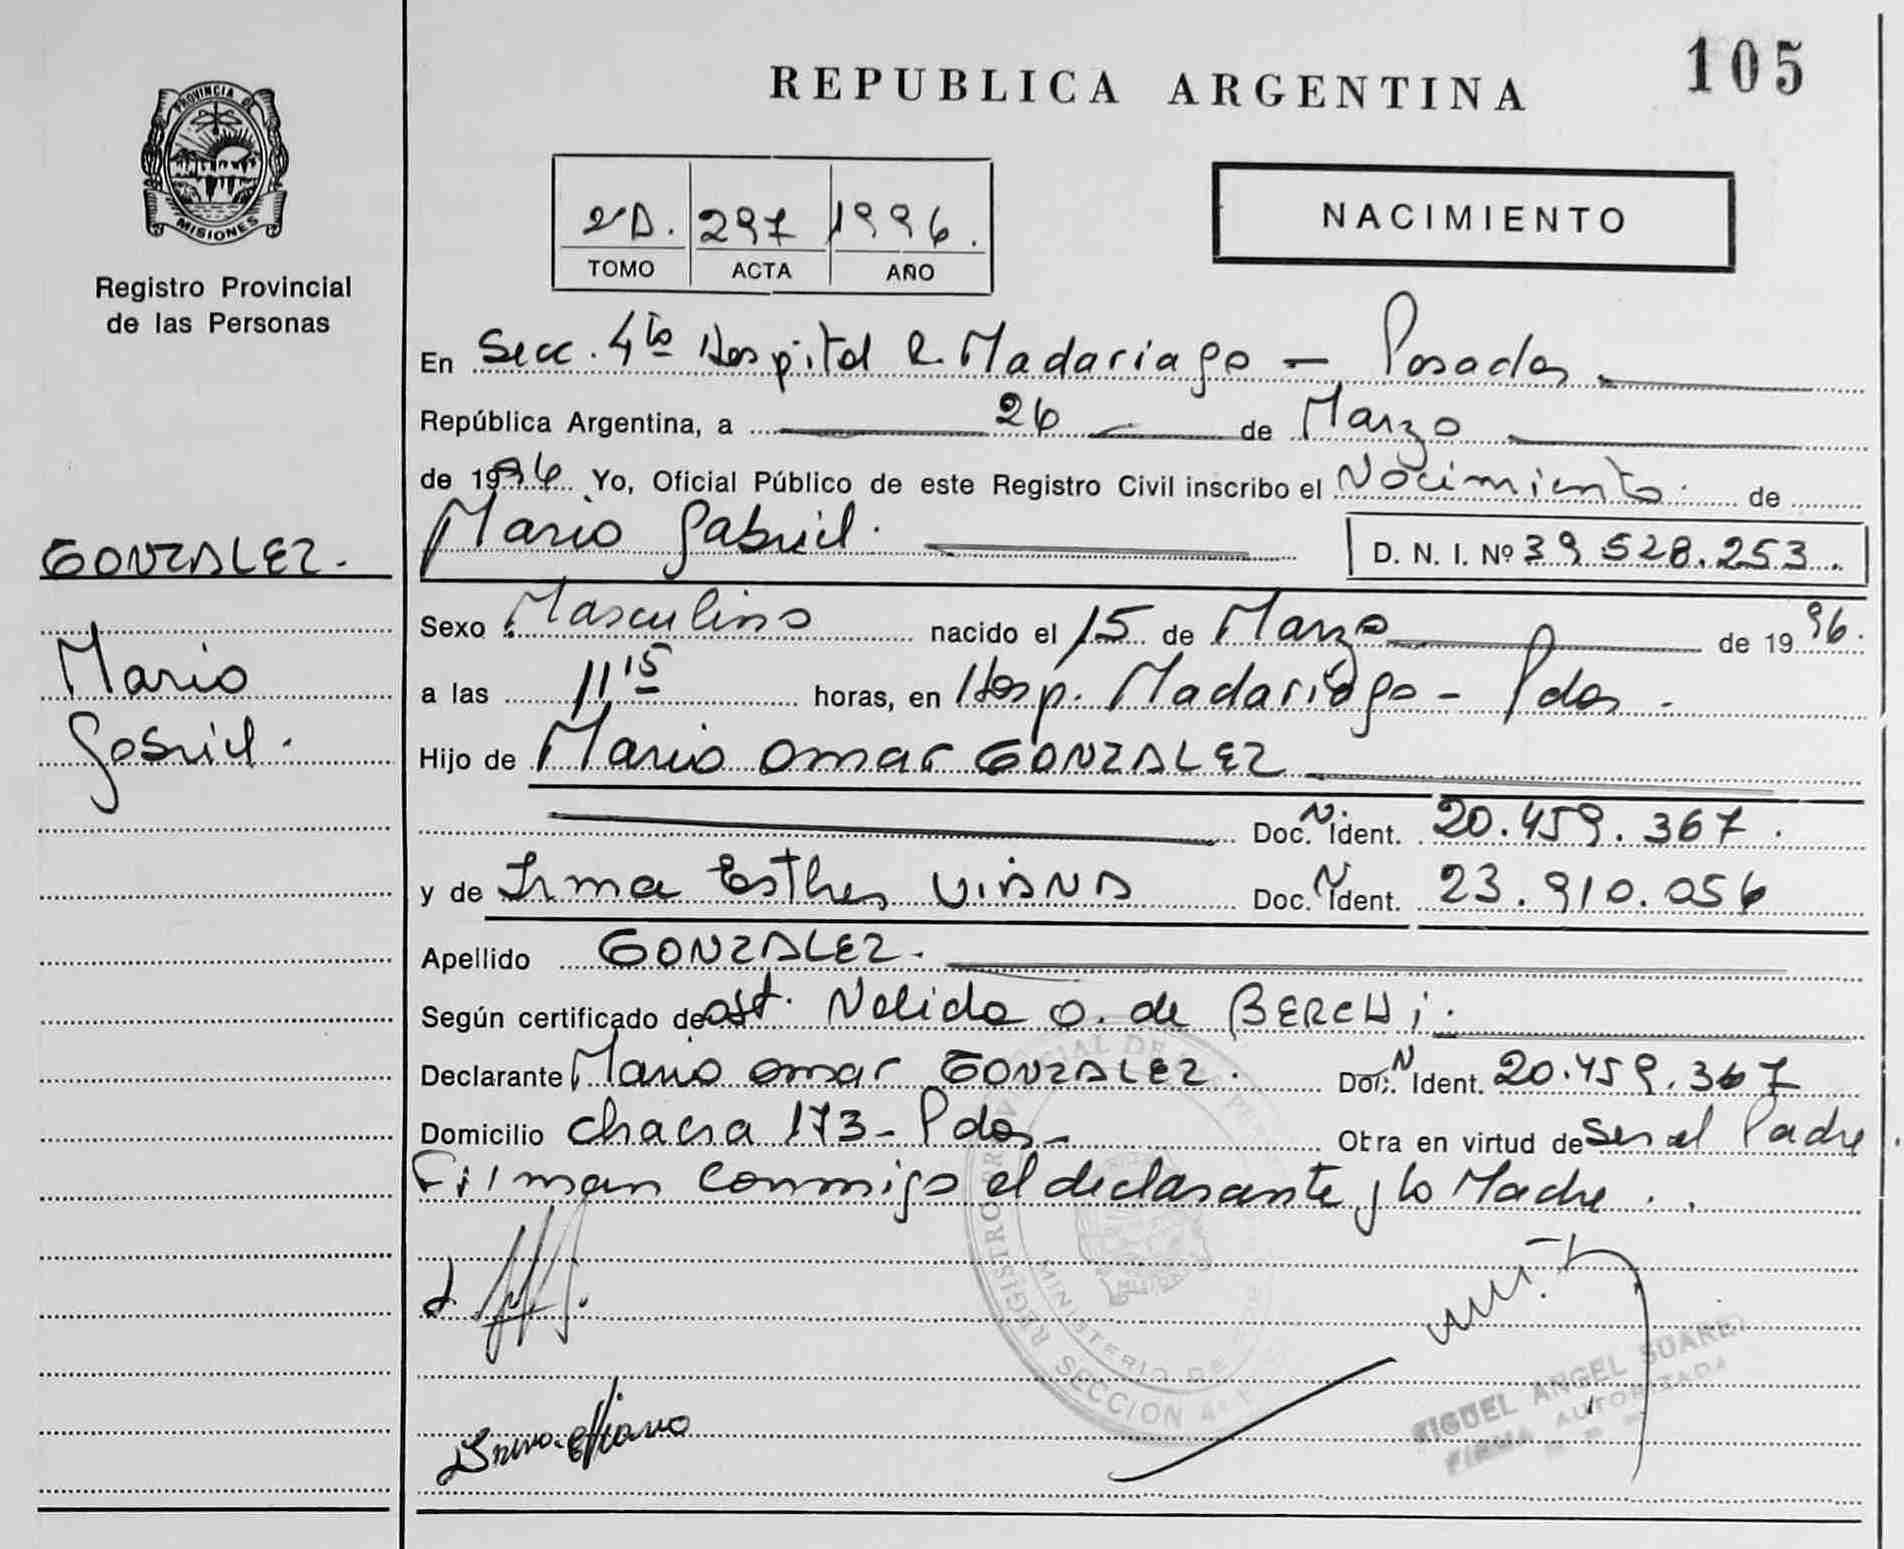 PROVINCIA DE
MISIONES
Registro Provincial
de las Personas
GONZALEZ.
Mario
Gabriel.
105
REPUBLICA ARGENTINA
2D. 297 1996.
TOMO ACTA AÑO
NACIMIENTO
En Secc. 4ta Hospital R. Madariaga — Posadas
República Argentina, a 26 de Marzo
de 1996 Yo, Oficial Público de este Registro Civil inscribo el Nacimiento de
Mario Gabriel. D. N. I. Nº 39.528.253.
Sexo Masculino nacido el 15 de Marzo de 1996.
a las 11 15 horas, en Hosp. Madariaga - Pdas.
Hijo de Mario Omar GONZALEZ
Doc. N. Ident. 20.459.367.
y de Irma Esther VIANA Doc. N Ident. 23.910.056
Apellido GONZALEZ.
Según certificado de Obst. Nelida O. de BERCHi.
Declarante Mario Omar GONZALEZ. Doc. N Ident. 20.459.367
Domicilio Chacra 173 - Pdas - Otra en virtud de Ser el Padre.
Firman conmigo el declarante y la Madre.
REGISTRO PROVINCIAL DE
MINISTERIO DE
SECCION 4ª
MIGUEL ANGEL SUAREZ
FIRMA AUTORIZADA